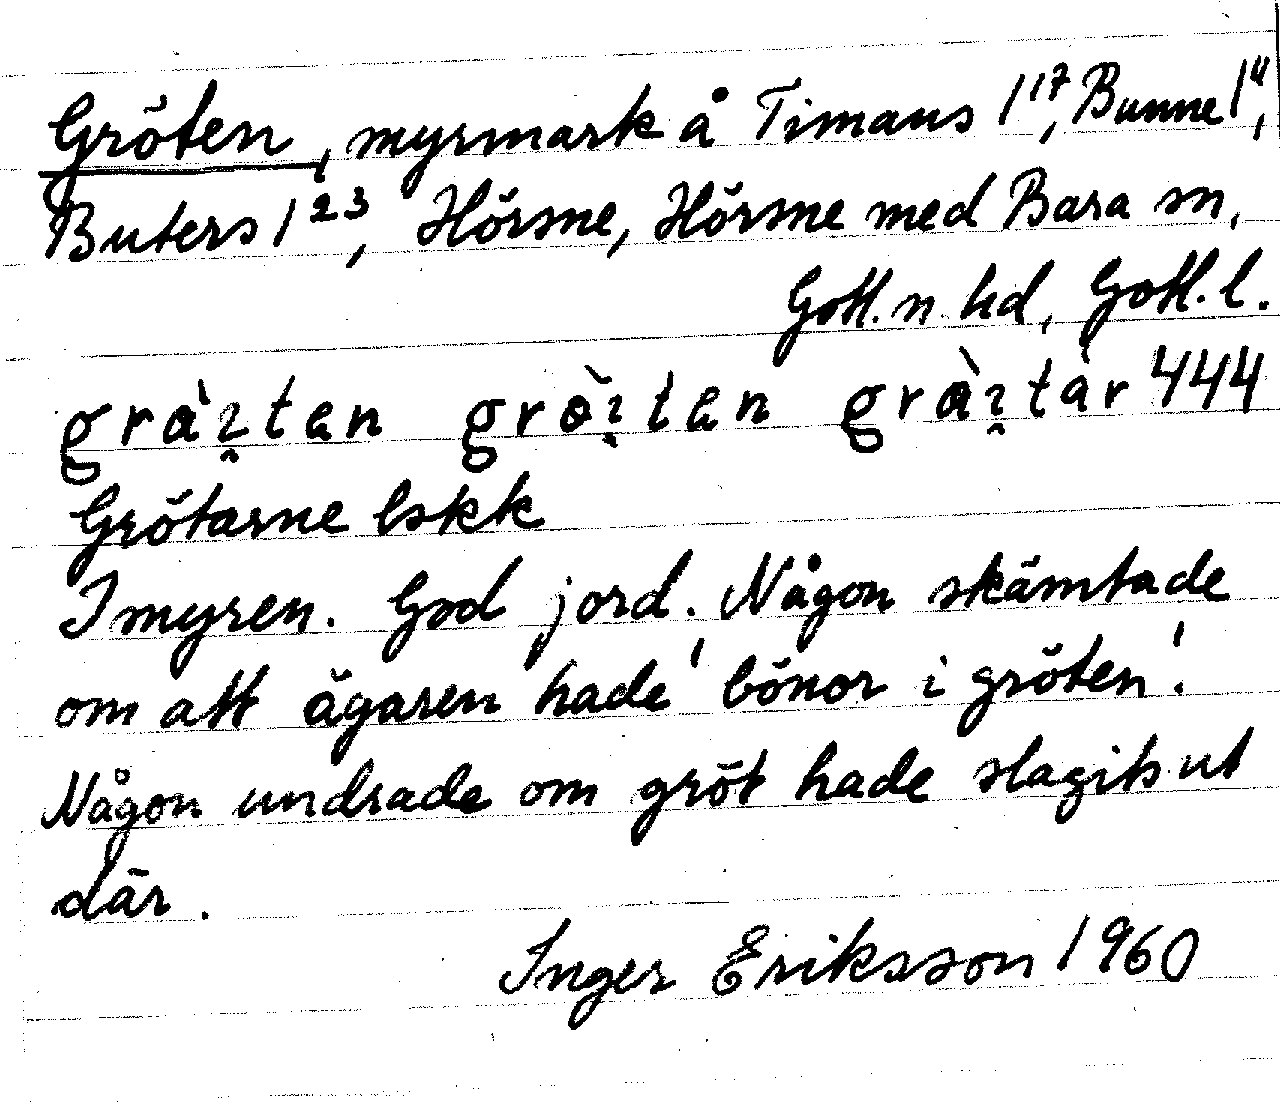 Gröten, myrmark å Timans 1¹⁷, Bunne 1⁴,
Buters 1²³, Hörsne, Hörsne med Bara sn,
Gotl. n. hd, Gotl. l.
444
Grötarne lskk
I myren. God jord. Någon skämtade
om att ägaren hade 'bönor i gröten'.
Någon undrade om gröt hade slagits ut
där.
Inger Eriksson 1960